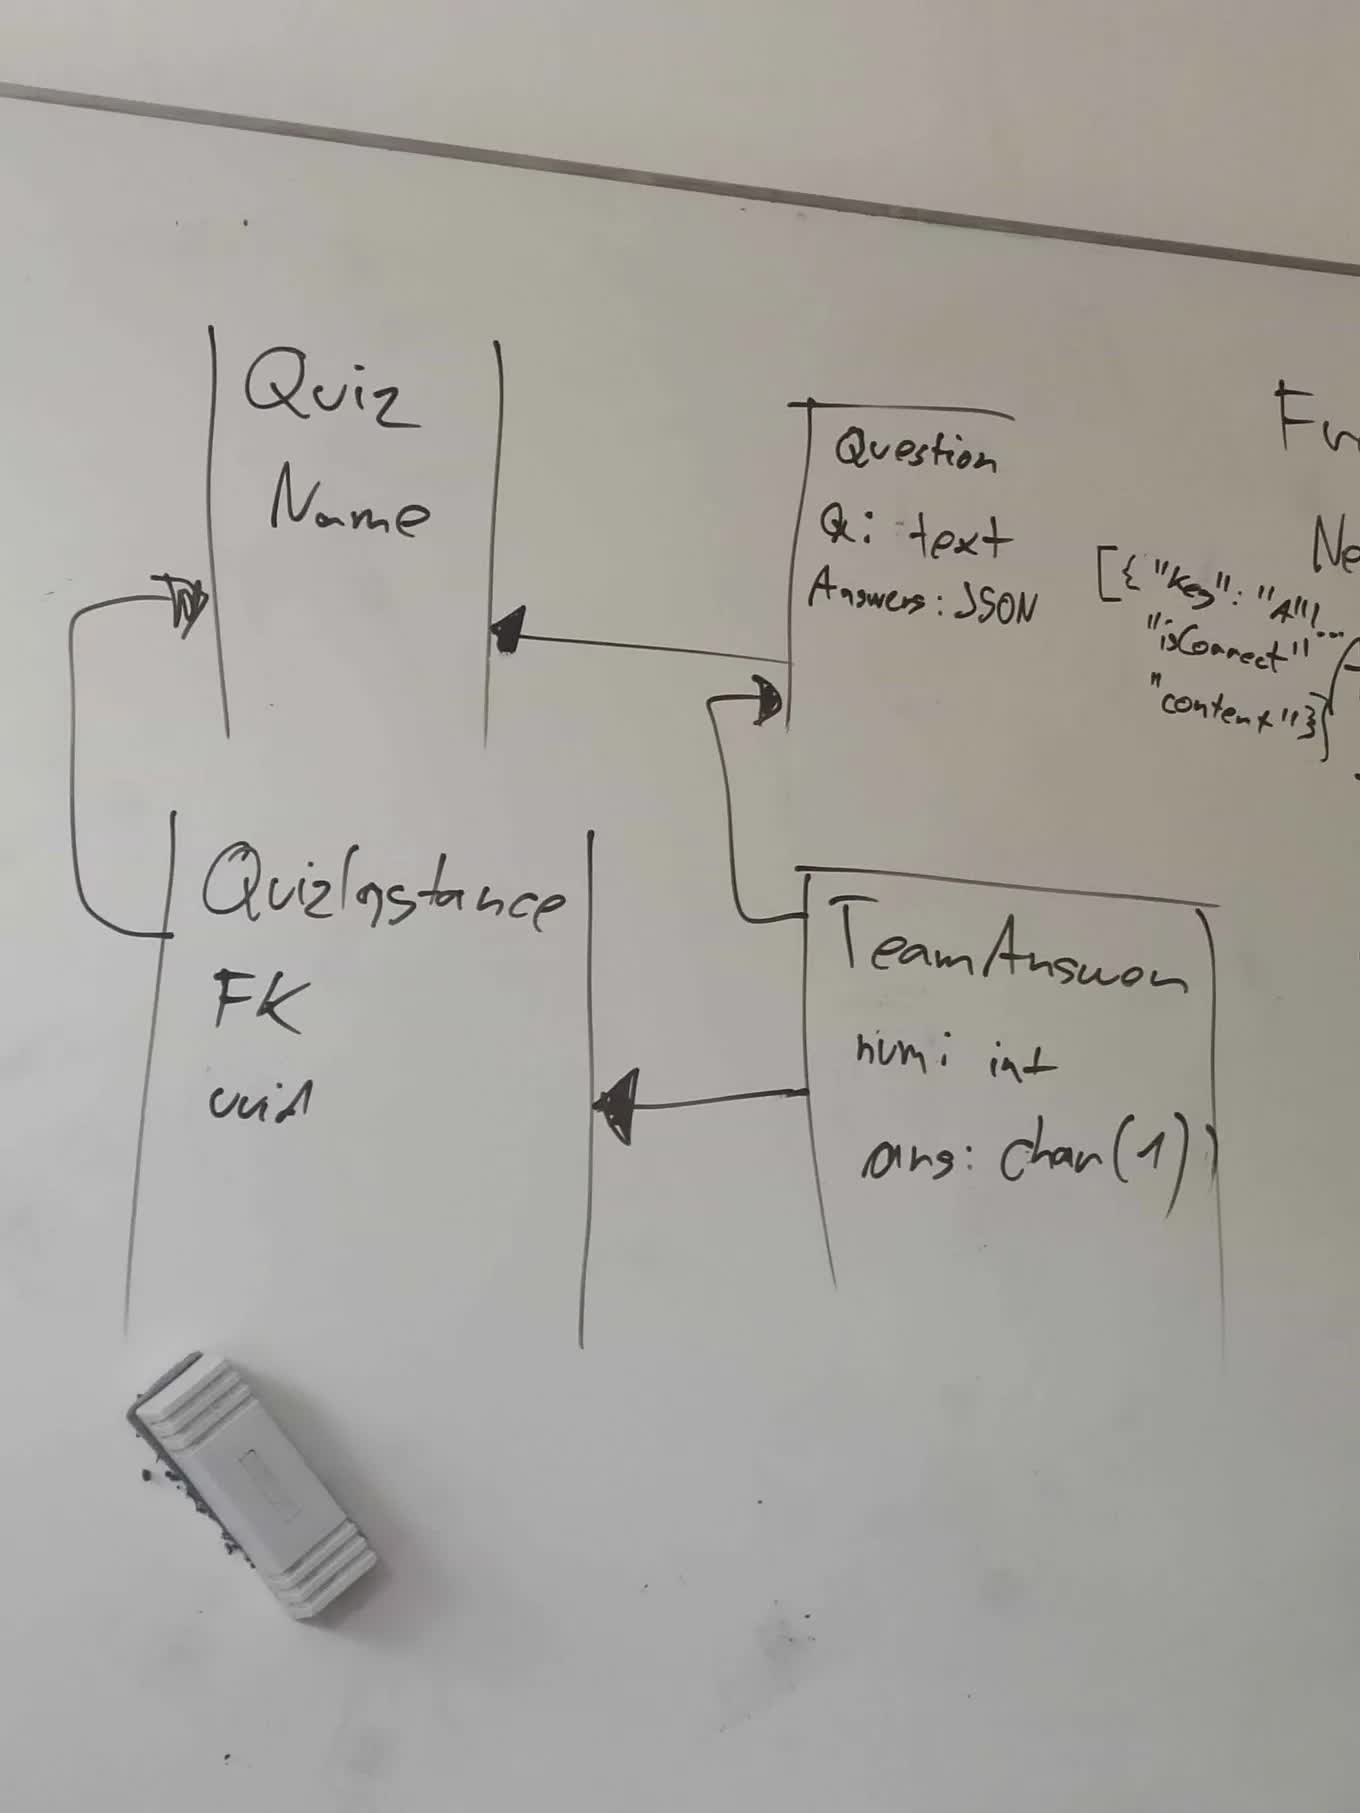 Quiz
Name
Question
Q: text
Answers: JSON
[{"Key": "A"!...
"isCorrect"
"content"}]
QuizInstance
FK
uuid
TeamAnswer
num: int
ans: char(1)